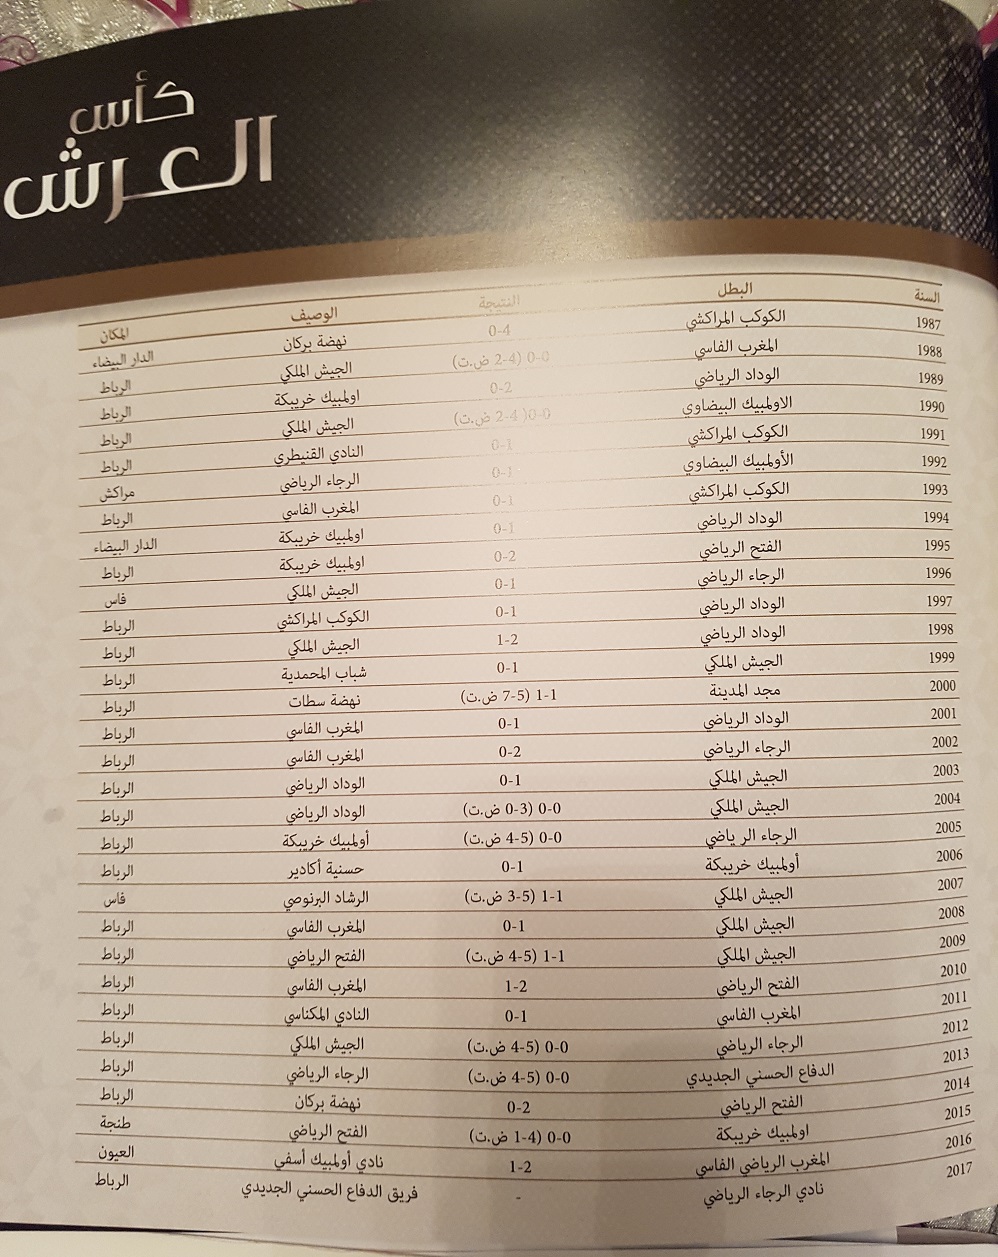 كأس
العرش
السنة البطل النتيجة الوصيف المكان
1987 الكوكب المراكشي 0-4 نهضة بركان الدار البيضاء
1988 المغرب الفاسي 0-0 (2-4 ض.ت) الجيش الملكي الرباط
1989 الوداد الرياضي 0-2 اولمبيك خريبكة الرباط
1990 الاولمبيك البيضاوي 0-0 (2-4 ض.ت) الجيش الملكي الرباط
1991 الكوكب المراكشي 0-1 النادي القنيطري الرباط
1992 الأولمبيك البيضاوي 0-1 الرجاء الرياضي مراكش
1993 الكوكب المراكشي 0-1 المغرب الفاسي الرباط
1994 الوداد الرياضي 0-1 اولمبيك خريبكة الدار البيضاء
1995 الفتح الرياضي 0-2 اولمبيك خريبكة الرباط
1996 الرجاء الرياضي 0-1 الجيش الملكي فاس
1997 الوداد الرياضي 0-1 الكوكب المراكشي الرباط
1998 الوداد الرياضي 1-2 الجيش الملكي الرباط
1999 الجيش الملكي 0-1 شباب المحمدية الرباط
2000 مجد المدينة 1-1 (7-5 ض.ت) نهضة سطات الرباط
2001 الوداد الرياضي 0-1 المغرب الفاسي الرباط
2002 الرجاء الرياضي 0-2 المغرب الفاسي الرباط
2003 الجيش الملكي 0-1 الوداد الرياضي الرباط
2004 الجيش الملكي 0-0 (0-3 ض.ت) الوداد الرياضي الرباط
2005 الرجاء الرياضي 0-0 (4-5 ض.ت) أولمبيك خريبكة الرباط
2006 أولمبيك خريبكة 0-1 حسنية أكادير الرباط
2007 الجيش الملكي 1-1 (3-5 ض.ت) الرشاد البرنوصي فاس
2008 الجيش الملكي 0-1 المغرب الفاسي الرباط
2009 الجيش الملكي 1-1 (4-5 ض.ت) الفتح الرياضي الرباط
2010 الفتح الرياضي 1-2 المغرب الفاسي الرباط
2011 المغرب الفاسي 0-1 النادي المكناسي الرباط
2012 الرجاء الرياضي 0-0 (4-5 ض.ت) الجيش الملكي الرباط
2013 الدفاع الحسني الجديدي 0-0 (4-5 ض.ت) الرجاء الرياضي الرباط
2014 الفتح الرياضي 0-2 نهضة بركان الرباط
2015 اولمبيك خريبكة 0-0 (1-4 ض.ت) الفتح الرياضي طنجة
2016 المغرب الرياضي الفاسي 1-2 نادي أولمبيك أسفي العيون
2017 نادي الرجاء الرياضي - فريق الدفاع الحسني الجديدي الرباط